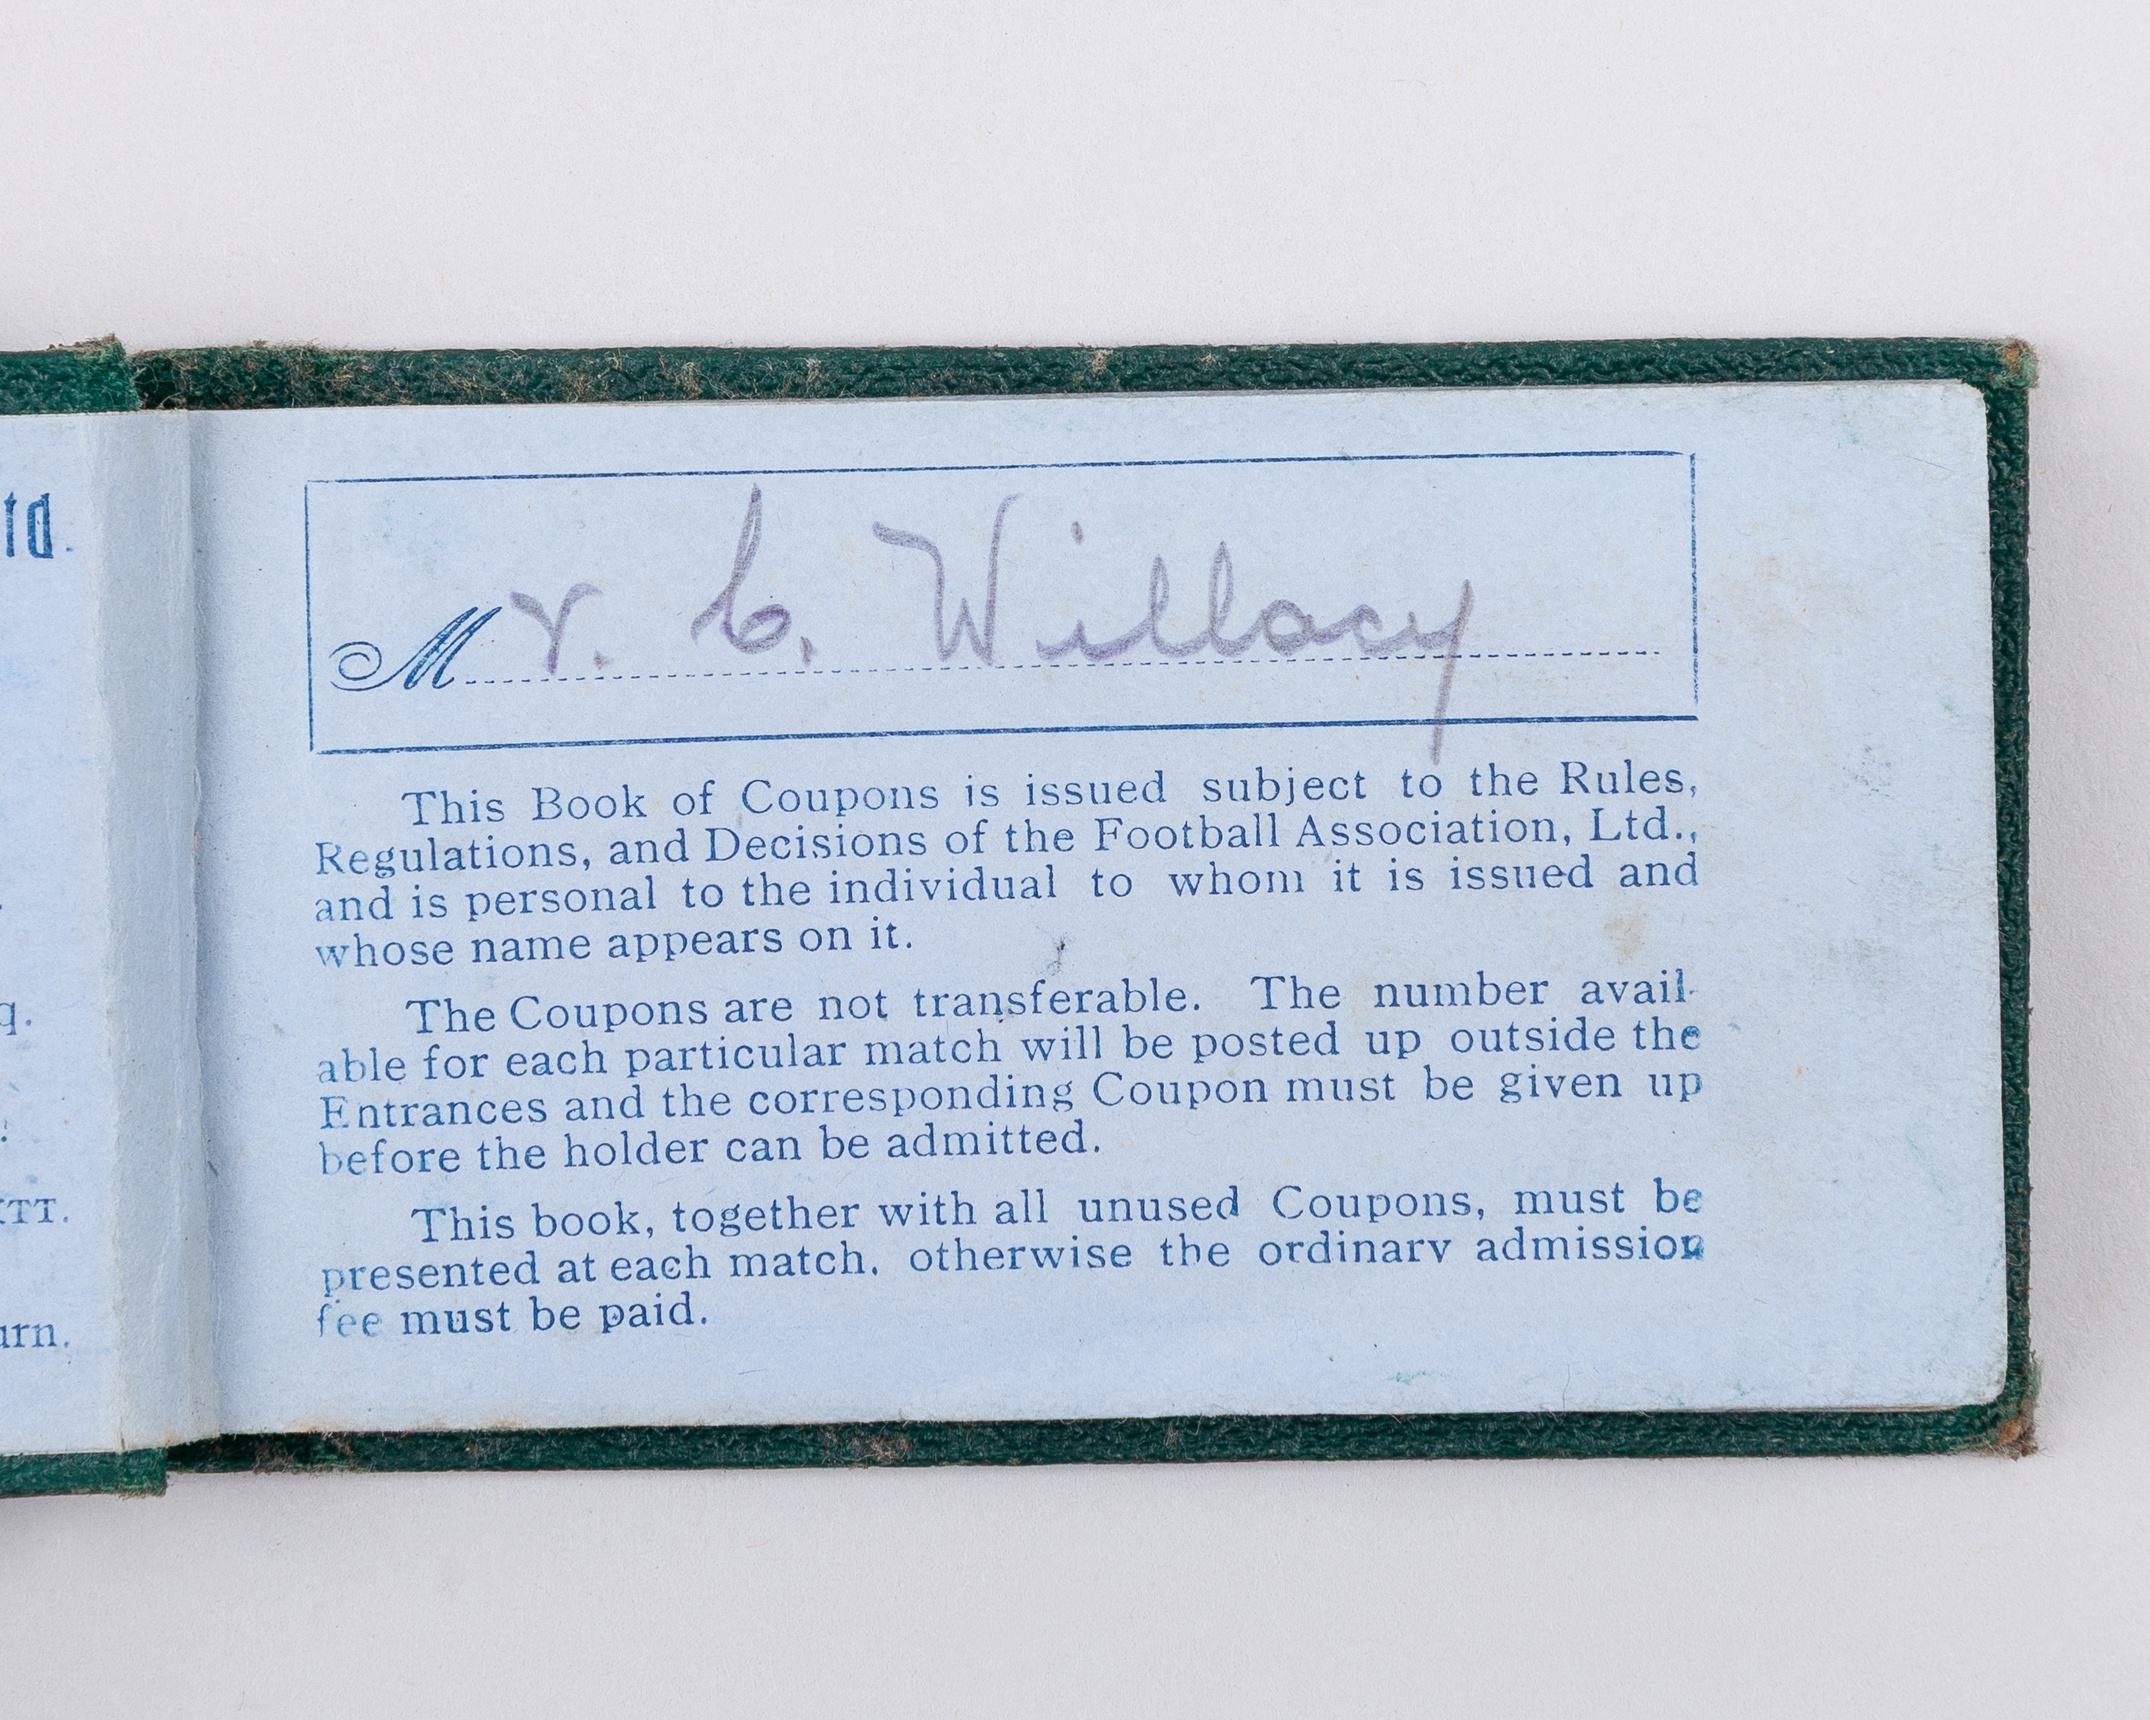 td.
Mr. C. Willacy
This Book of Coupons is issued subject to the Rules,
Regulations, and Decisions of the Football Association, Ltd.,
and is personal to the individual to whom it is issued and
whose name appears on it.
The Coupons are not transferable. The number avail-
able for each particular match will be posted up outside the
Entrances and the corresponding Coupon must be given up
before the holder can be admitted.
This book, together with all unused Coupons, must be
presented at each match, otherwise the ordinary admission
fee must be paid.
q.
TT.
urn.